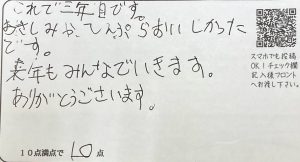 これで三年目です。
あさしみや、てんぷらおいしかった
です。
来年もみんなでいきます。
ありがとうございます。
スマホでも投稿
OK！チェック欄
記入後フロント
へお渡し下さい。
10点満点で 10 点